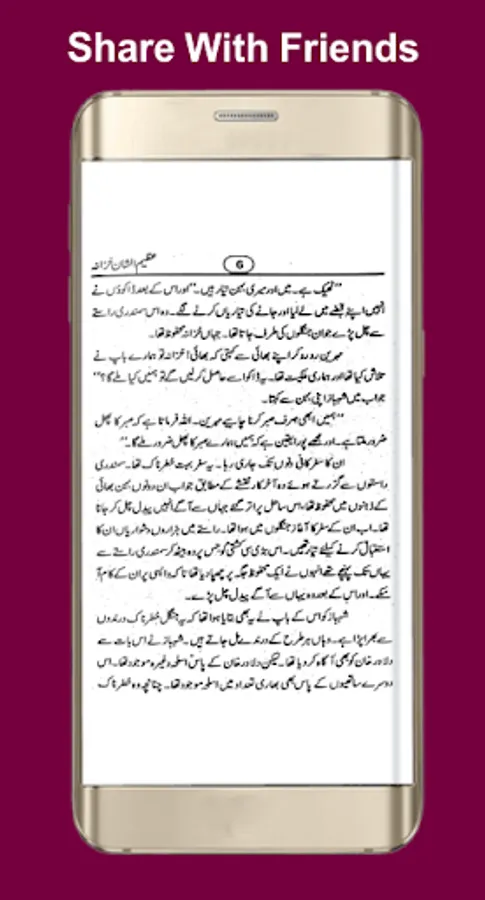 Share With Friends
عظیم الشان خزانہ
6
’’ٹھیک ہے۔ میں اور میری بہن تیار ہیں۔‘‘ اور اس کے بعد ڈاکوؤں نے
انہیں اپنے قبضے میں لے لیا اور جانے کی تیاریاں کرنے لگے۔ وہ اس سمندری راستے
سے چل پڑے جو ان جنگلوں کی طرف جاتا تھا۔ جہاں خزانہ محفوظ تھا۔
مہرین رو رو کر اپنے بھائی سے کہتی کہ بھائی! خزانہ تو ہمارے باپ نے
تلاش کیا تھا اور ہماری ملکیت تھا۔ یہ ڈاکو اسے حاصل کر لیں گے تو ہمیں کیا ملے گا؟‘‘
جواب میں شہباز اپنی بہن سے کہتا۔
’’ہمیں ابھی صرف صبر کرنا چاہیے مہرین۔ اللہ فرماتا ہے کہ صبر کا پھل
ضرور ملتا ہے۔ اور مجھے پورا یقین ہے کہ ہمیں ہمارے صبر کا پھل ضرور ملے گا۔‘‘
ان کا سفر کافی دنوں تک جاری رہا۔ یہ سفر بہت خطرناک تھا۔ سمندری
راستوں سے گزرتے ہوئے وہ آخر کار نقشے کے مطابق جو اب ان دونوں بہن بھائی
کے ذہنوں میں محفوظ تھا، اس ساحل پر اتر گئے جہاں سے آگے انہیں پیدل چل کر جانا
تھا۔ اب ان کے سفر کا آغاز جنگلوں میں ہوا تھا۔ راستے میں ہزاروں دشواریاں ان کا
استقبال کرنے کیلئے تیار تھیں۔ اس بڑی سی کشتی کو جس پر وہ بیٹھ کر سمندری راستے سے
یہاں تک پہنچے تھے انہوں نے ایک محفوظ جگہ پر چھپا دیا تھا تاکہ واپسی پر ان کے کام آ
سکے۔ اور اس کے بعد وہ یہاں سے آگے پیدل چل پڑے۔
شہباز کو اس کے باپ نے یہ بھی بتایا ہوا تھا کہ یہ جنگل خطرناک درندوں
سے بھرا پڑا ہے۔ وہاں ہر طرح کے درندے مل جاتے ہیں۔ شہباز نے اس بات سے
دلاور خان کو بھی آگاہ کر دیا تھا۔ لیکن دلاور خان کے پاس اسلحہ وغیرہ موجود تھا۔ اس
دوسرے ساتھیوں کے پاس بھی بھاری تعداد میں اسلحہ موجود تھا۔ چنانچہ وہ خطرناک